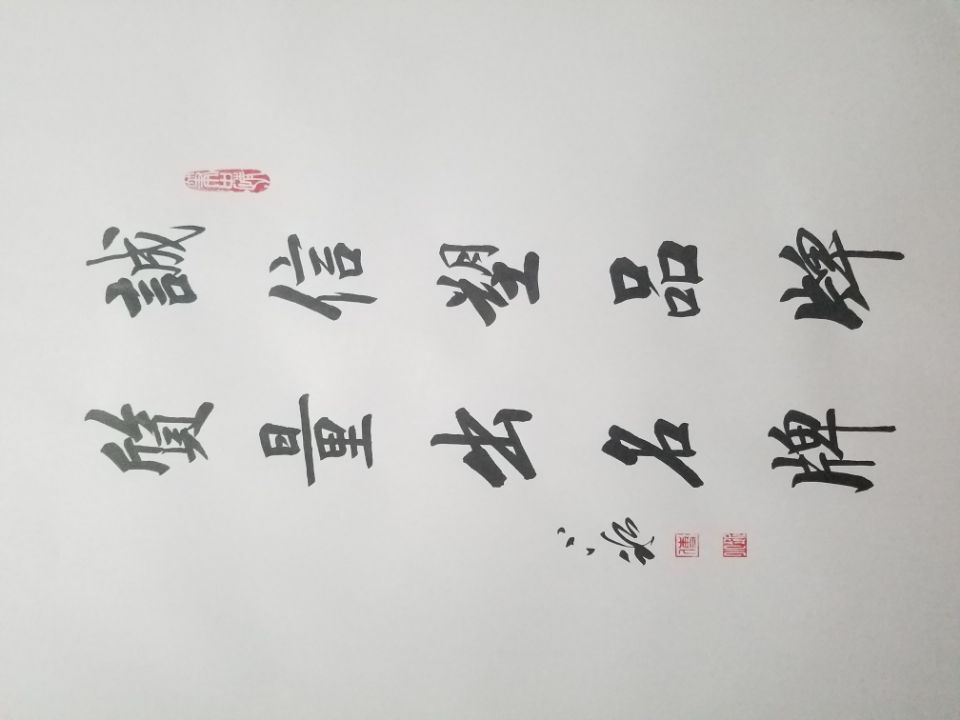 誠信塑品牌
質量出名牌